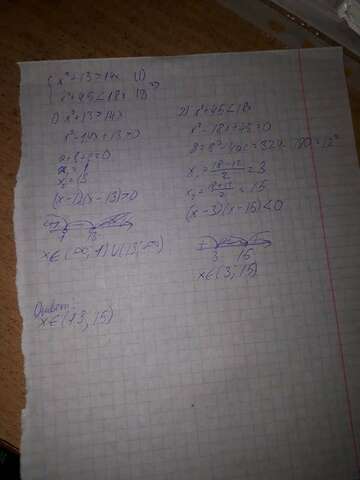 { x²+13>14x (1)
x²+45<18x (2)
1) x²+13>14x
x²-14x+13=0
a+b+c=0
x₁=1
x₂=13
(x-1)(x-13)>0
1 13
x∈(-∞;1)∪(13;+∞)
2) x²+45<18x
x²-18x+45=0
D=b²-4ac=324-180=12²
x₁=\frac{18-12}{2}=3
x₂=\frac{18+12}{2}=15
(x-3)(x-15)<0
3 15
x∈(3;15)
Ответ:
x∈(13;15)